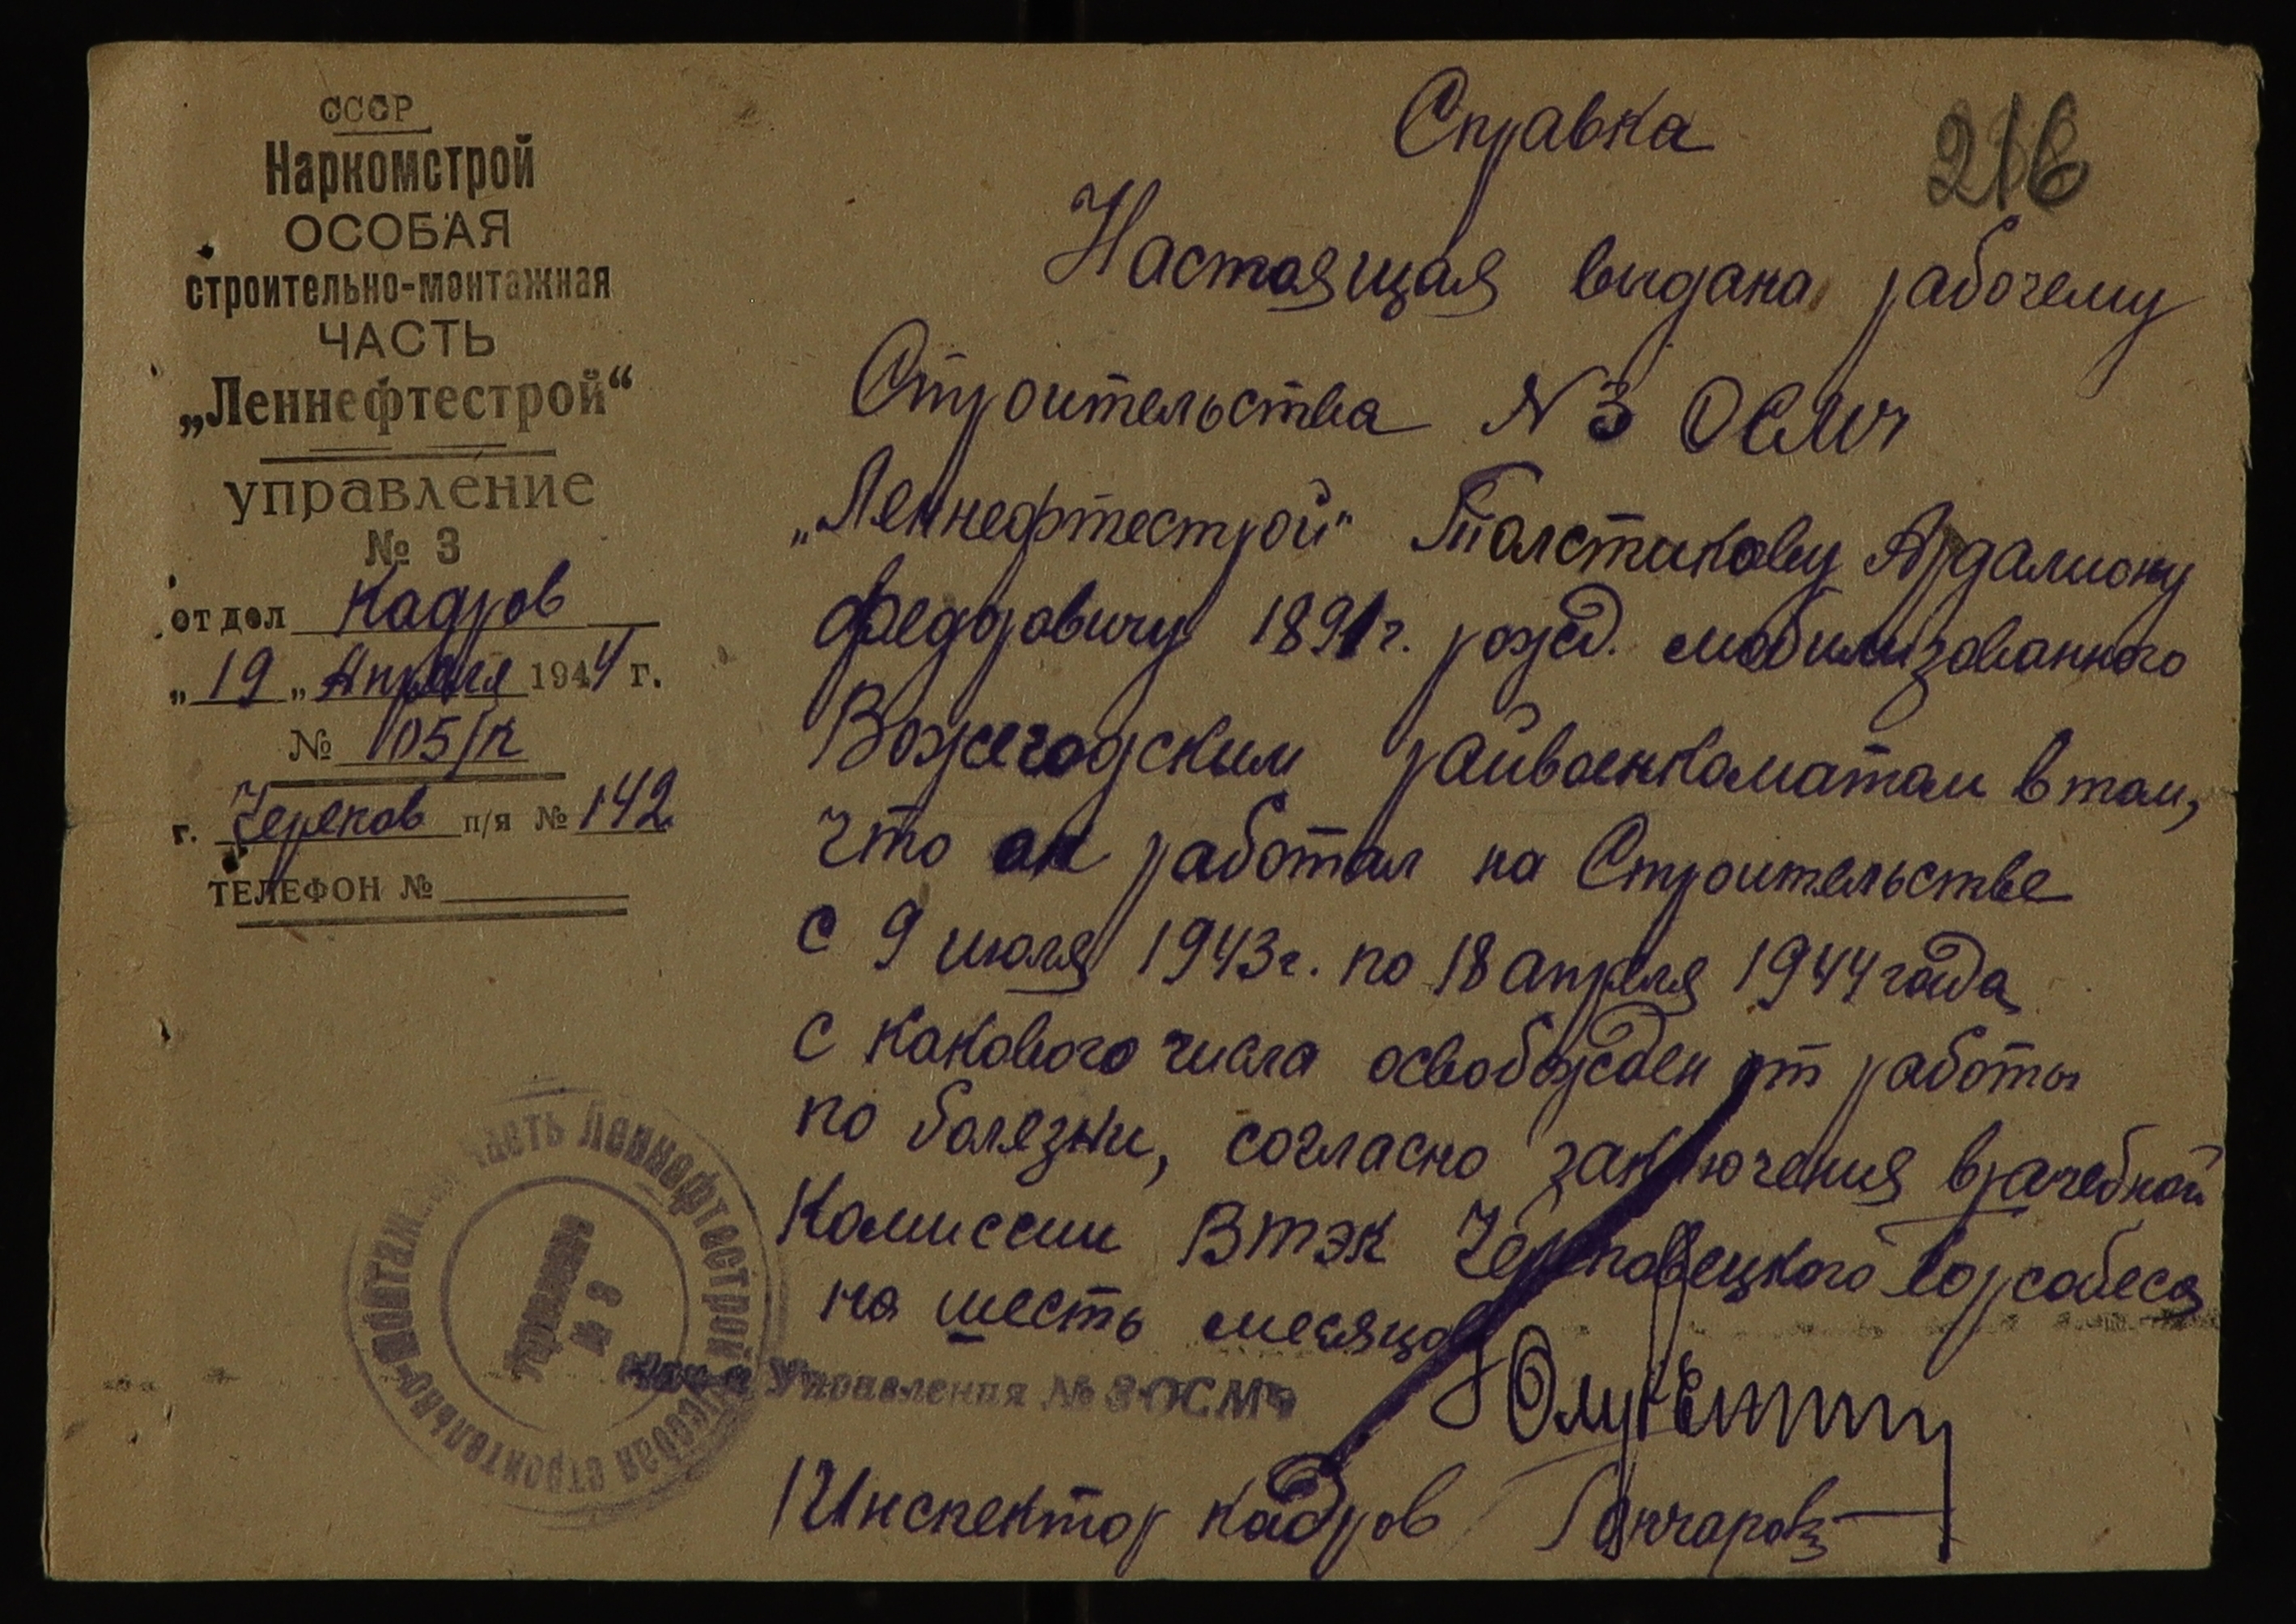 СССР
Наркомстрой
ОСОБАЯ
строительно-монтажная
ЧАСТЬ
„Леннефтестрой“
управление
№ 3
отдел Кадров
„19„ Апреля 1944 г.
№ 105/к
г. Череков п/я № 142
ТЕЛЕФОН №
216
Справка
Настоящая выдана рабочему
Строительства N 3 ОСМЧ
„Леннефтестрой" Толстикову Ардалиону
Федоровичу 1891 г. рожд. мобилизованного
Вожегодским райвоенкоматом в том,
что он работал на Строительстве
с 9 июля 1943 г. по 18 апреля 1944 года
с какового числа освобожден от работы
по болезни, согласно заключения врачебной
Комиссии ВТЭК Череповецкого Горсобеса
на шесть месяцев
Управления № 3 ОСМЧ
Инспектор кадров Гончарова
Особая строительно-монтажная часть Леннефтестрой
Управление
№ 3